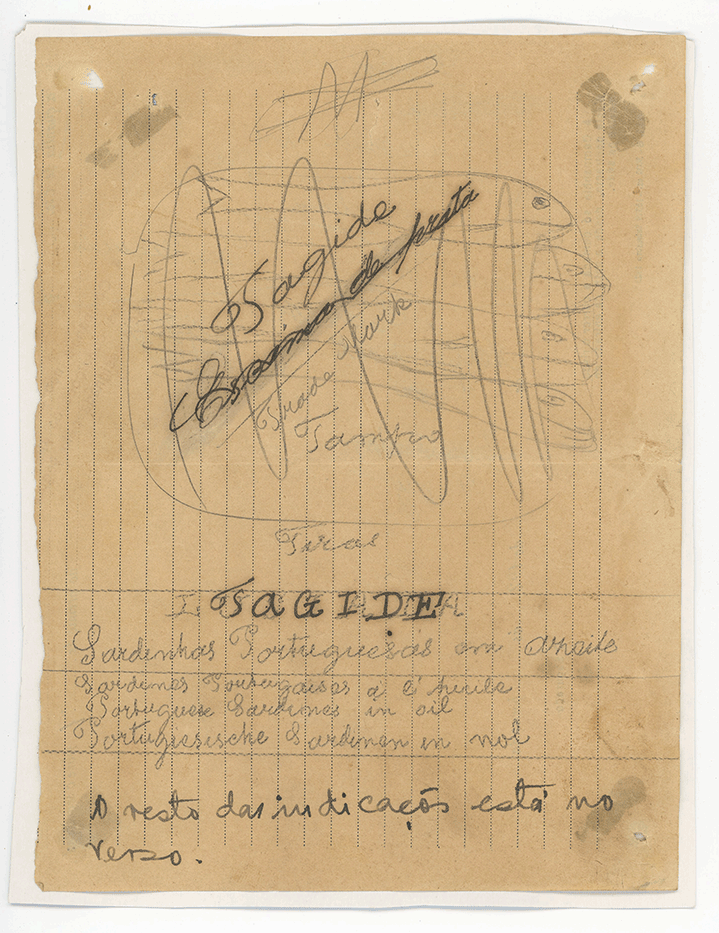 Tagide
Escama de prata
Trade Mark
Tampo
Tiras
TAGIDE
Sardinhas Portuguesas em azeite
Sardines Portugaises á l'huile
Portuguese Sardines in oil
Portugiesische Sardinen in nol
O resto das indicações está no
verso.